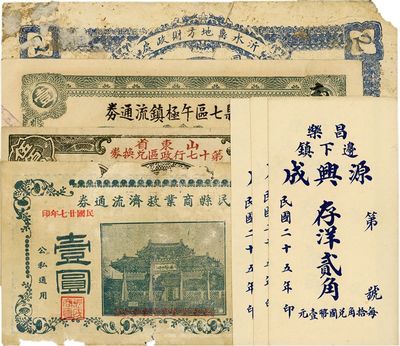 沂水縣地方財政處
縣七區午極鎮流通券
山東省
第十七行政區兌換券
民縣商業救濟流通券
民國廿七年印
壹圓
公私通用
昌樂
邊下鎮
源興成
第 號
存洋貳角
民國二十五年印
每拾角兌國幣壹元
民國二十五年印
民國二十五年印